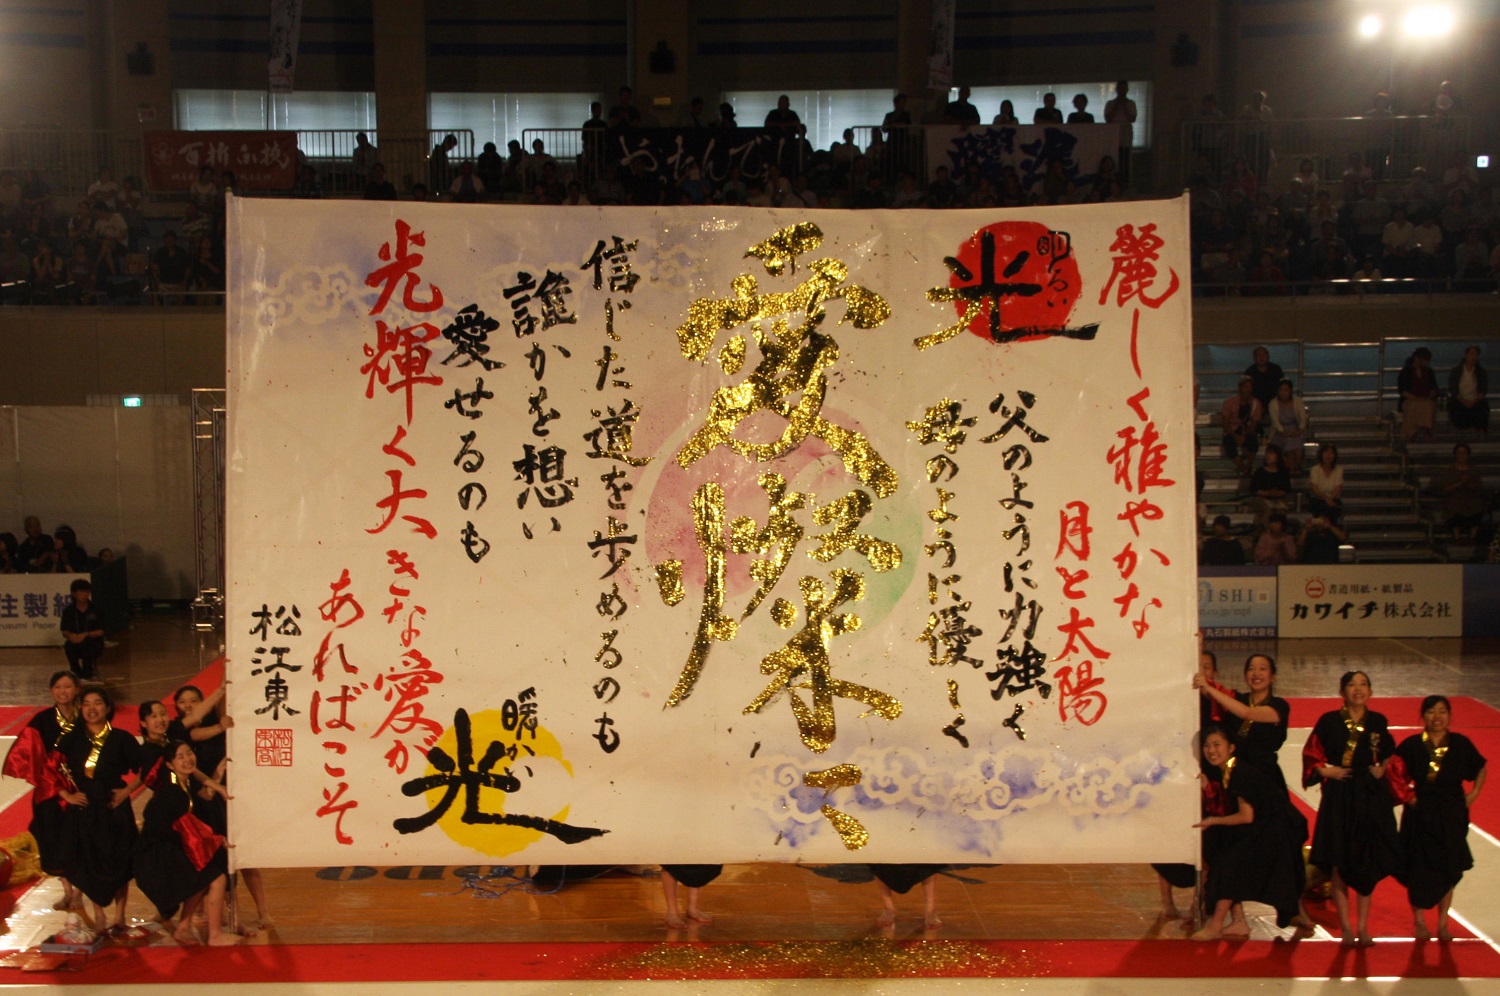 百折不撓
麗しく雅やかな
月と太陽
明るい
光
父のように力強く
母のように優しく
愛燦々
信じた道を歩めるのも
誰かを想い
愛せるのも
光輝く大きな愛が
あればこそ
暖かい
光
松江東
UISHI
丸石製紙株式会社
書道用紙・紙製品
カワイチ株式会社
住製紙